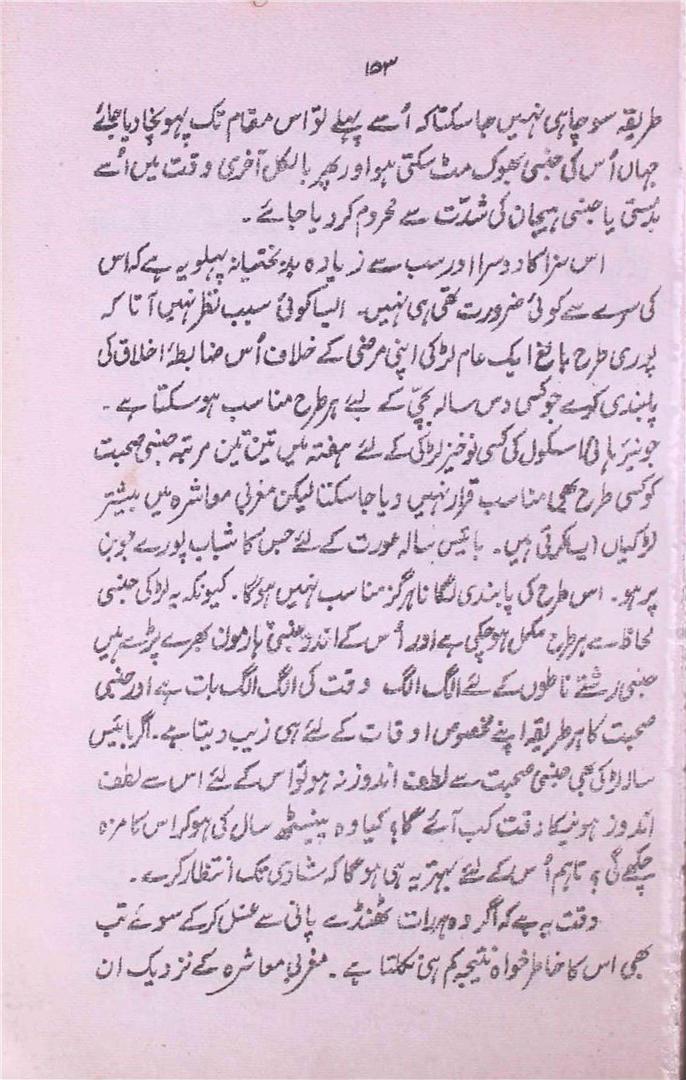 ۱۵۳
طریقہ سوچا ہی نہیں جا سکتا کہ اُسے پہلے تو اس مقام تک پہونچا دیا جائے
جہاں اُس کی جنسی بھوک مٹ سکتی ہو اور پھر بالکل آخری وقت میں اُسے
بدمستی یا جنسی ہیجان کی شدّت سے محروم کر دیا جائے۔
اس سزا کا دوسرا اور سب سے زیادہ بدبختیانہ پہلو یہ ہے کہ اس
کی سرے سے کوئی ضرورت تھی ہی نہیں۔ ایسا کوئی سبب نظر نہیں آتا کہ
پوری طرح بالغ ایک عام لڑکی اپنی مرضی کے خلاف اُس ضابطۂ اخلاق کی
پابندی کرے جو کسی دس سالہ بچّی کے لیے ہر طرح مناسب ہو سکتا ہے۔
جونیئر ہائی اسکول کی کسی نوخیز لڑکی کے لئے ہفتہ میں تین تین مرتبہ جنسی صحبت
کو کسی طرح بھی مناسب قرار نہیں دیا جا سکتا لیکن مغربی معاشرہ میں بیشتر
لڑکیاں ایسا کرتی ہیں۔ بائیس سالہ عورت کے لئے جس کا شباب پورے جوبن
پر ہو۔ اس طرح کی پابندی لگانا ہرگز مناسب نہیں ہوگا۔ کیونکہ یہ لڑکی جنسی
لحاظ سے ہر طرح مکمل ہو چکی ہے اور اُس کے اندر جنسی ہارمون بھرے پڑے ہیں
جنسی رشتے ناطوں کے لئے الگ الگ وقت کی الگ الگ بات ہے اور جنسی
صحبت کا ہر طریقہ اپنے مخصوص اوقات کے لئے ہی زیب دیتا ہے۔ اگر بائیس
سالہ لڑکی بھی جنسی صحبت سے لطف اندوز نہ ہو تو اس کے لئے اس سے لطف
اندوز ہونیکا وقت کب آئے گا؟ کیا وہ پینسٹھ سال کی ہو کر اس کا مزہ
چکھے گی؟ تاہم اُس کے لئے بہتر یہ ہی ہوگا کہ شادی تک انتظار کرے۔
دقت یہ ہے کہ اگر وہ ہر رات ٹھنڈے پانی سے غسل کر کے سوئے تب
بھی اس کا خاطر خواہ نتیجہ کم ہی نکلتا ہے۔ مغربی معاشرہ کے نزدیک ان